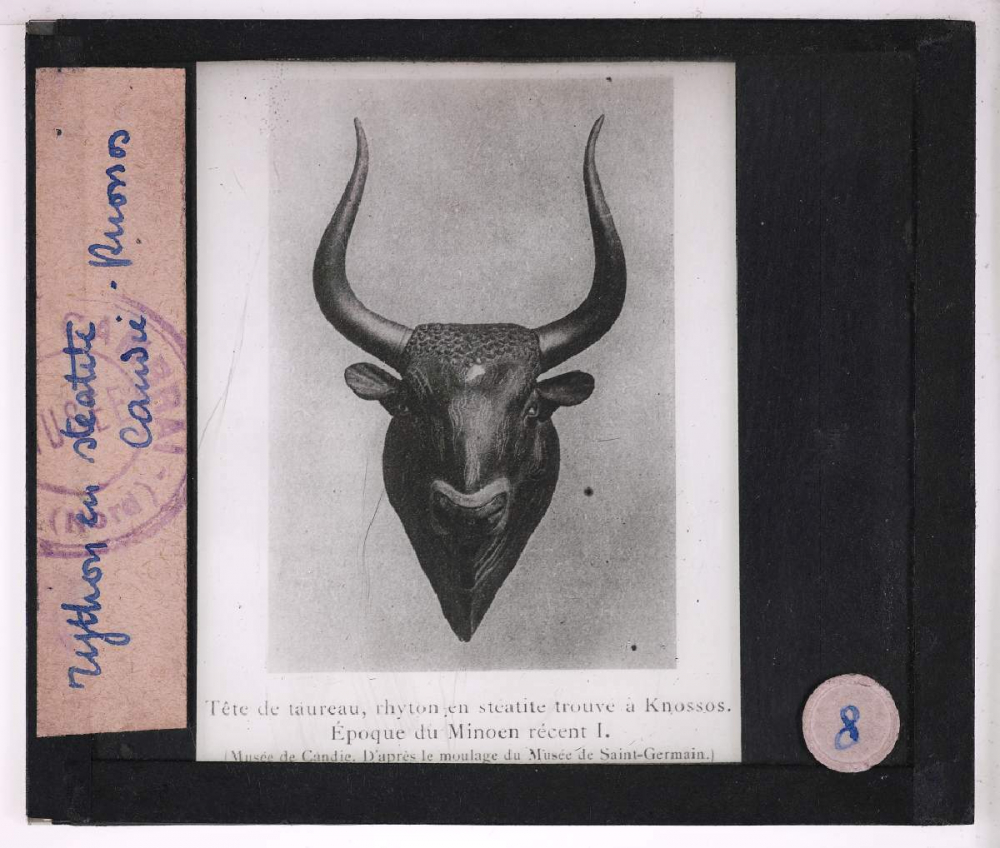 rhython en stéatite
Candie - Knossos
Tête de taureau, rhyton en stéatite trouvé à Knossos.
Époque du Minoen récent I.
(Musée de Candie. D'après le moulage du Musée de Saint-Germain.)
8